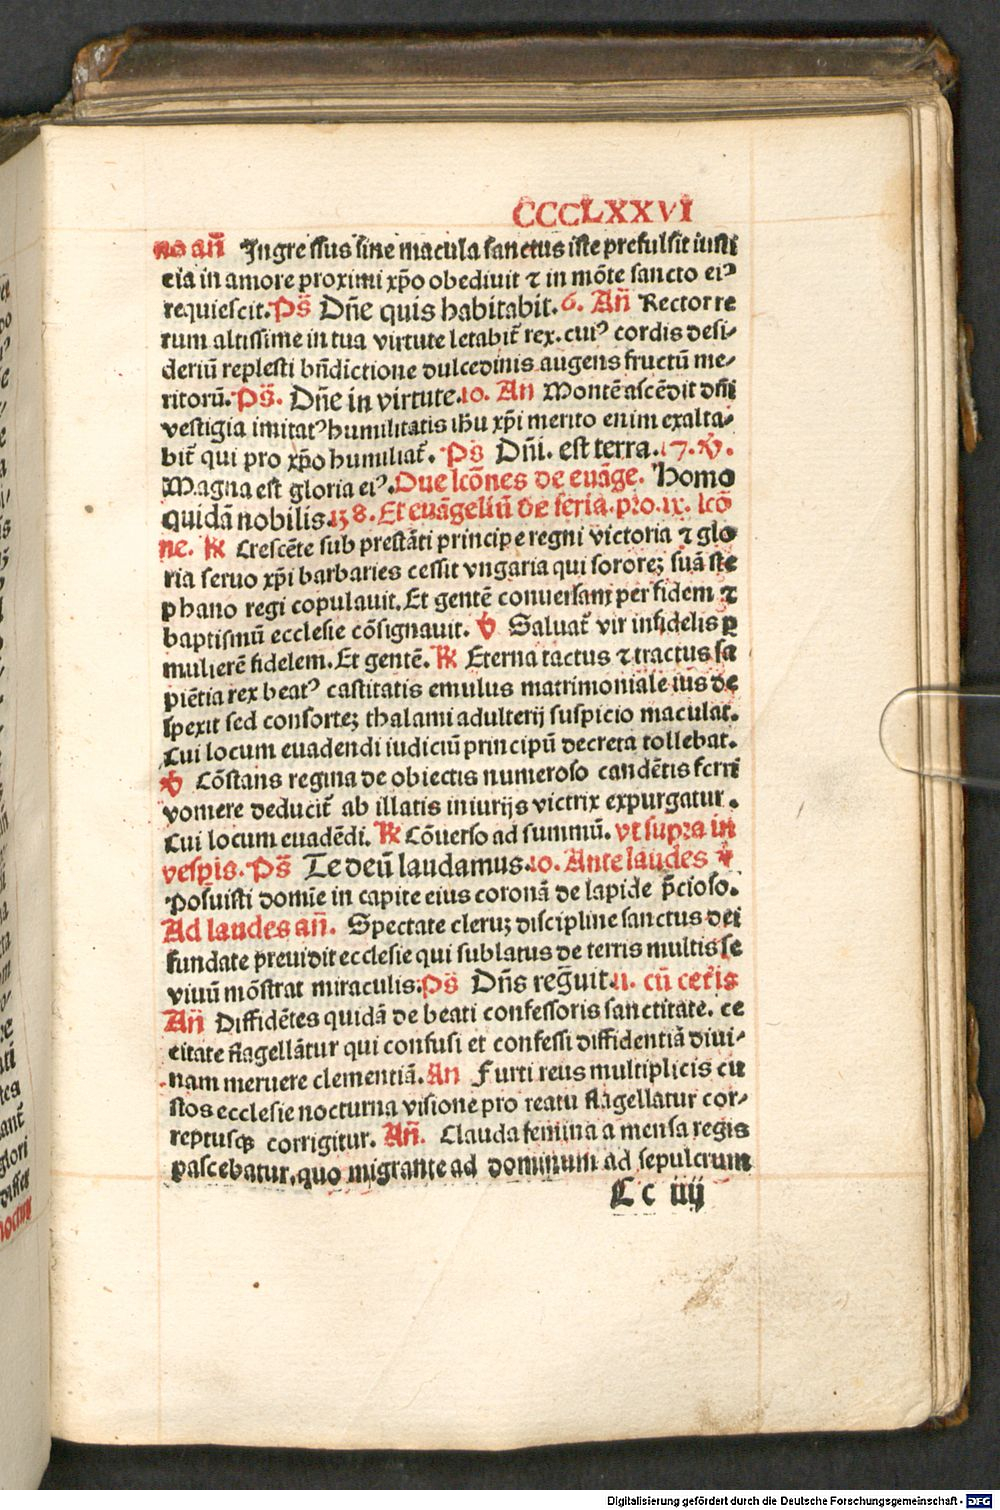 CCCLXXVI
no an̄ Ingressus sine macula sanctus iste prefulsit iusti
cia in amore proximi xp̄o obediuit ⁊ in mōte sancto eiꝰ
requiescit. Ps̄ Dn̄e quis habitabit. 6. An̄ Rector re
rum altissime in tua virtute letabit̄ rex. cuiꝰ cordis desi⸗
deriū replesti bn̄dictione dulcedinis augens fructū me⸗
ritorū. Ps̄. Dn̄e in virtute. 10. An̄ Montē ascēdit dn̄i
vestigia imitatꝰ humilitatis ihu xp̄i merito enim exalta⸗
bit̄ qui pro xp̄o humiliat̄. Ps̄ Dn̄i. est terra. 17. v̄.
Magna est gloria eiꝰ. Due lcōnes de euāge. Homo
quidā nobilis. 138. Et euāgeliū de feria. pro. ix. lcō
ne. ℞ Crescēte sub prestāti principe regni victoria ⁊ glo
ria seruo xp̄i barbaries cessit vngaria qui sororeꝫ suā ste
phano regi copulauit. Et gentē conuersam per fidem ⁊
baptismū ecclesie cōsignauit. ꝟ Saluat̄ vir infidelis ꝑ
mulierē fidelem. Et gentē. ℞ Eterna tactus ⁊ tractus sa
piētia rex beatꝰ castitatis emulus matrimoniale ius de
spexit sed consorteꝫ thalami adulterij suspicio maculat.
Cui locum euadendi iudiciū principū decreta tollebat.
ꝟ Cōstans regina de obiectis numeroso candētis ferri
vomere deducit̄ ab illatis iniurijs victrix expurgatur.
Cui locum euadēdi. ℞ Cōuerso ad summū. vt supra in
vespis. Ps̄ Te deū laudamus. 10. Ante laudes ꝟ
Posuisti domīe in capite eius coronā de lapide p̄cioso.
Ad laudes an̄. Spectate cleruꝫ discipline sanctus dei
fundate preuidit ecclesie qui sublatus de terris multis se
viuū mōstrat miraculis: Ps̄ Dn̄s reg̅uit. 11. cū cet̄is
An̄ Diffidētes quidā de beati confessoris sanctitate. ce
citate flagellātur qui confusi et confessi diffidentiā diui⸗
nam meruere clementiā. An Furti reus multiplicis cu
stos ecclesie nocturna visione pro reatu flagellatur cor⸗
reptusqꝫ corrigitur. An̄. Clauda femina a mensa regis
pascebatur, quo migrante ad dominum ad sepulcrum
Cc iiij
Digitalisierung gefördert durch die Deutsche Forschungsgemeinschaft - DFG